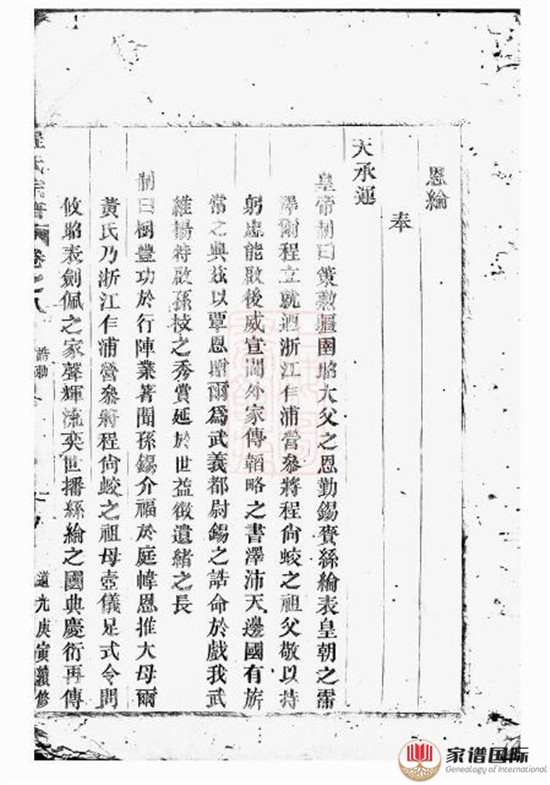 恩綸
奉
天承運
皇帝制曰策勲疆圉昭大父之恩勤錫賚絲綸表皇朝之霈
澤爾程立就廼浙江乍浦營參將程尙蛟之祖父敬以持
躬忠能啟後威宣閫外家傳韜略之書澤沛天邊國有旂
常之典玆以覃恩贈爾爲武義都尉錫之誥命於戲我武
維揚特啟孫枝之秀賞延於世益徵遺緒之長
制曰樹豐功於行陣業著聞孫錫介福於庭幃恩推大母爾
黃氏乃浙江乍浦營參將程尙蛟之祖母壼儀足式令問
攸昭表劍佩之家聲輝流奕世播絲綸之國典慶衍再傳
程氏宗譜
卷之八
誥勅
道光庚寅續修
家谱国际
Genealogy of International